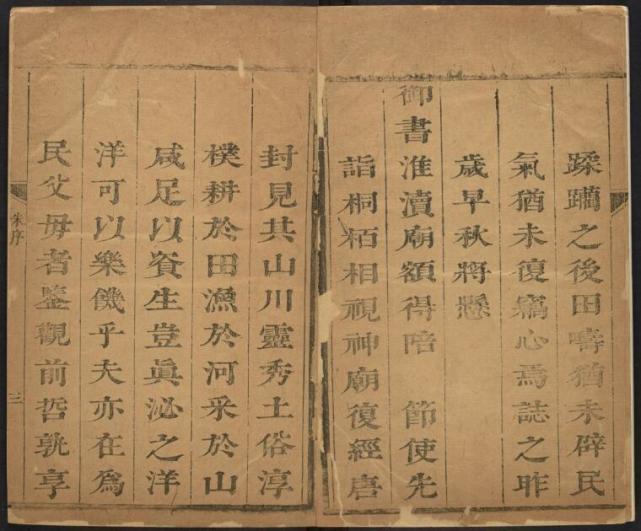 蹂躪之後田疇猶未辟民
氣猶未復竊心焉誌之昨
歲早秋將懸
御書淮瀆廟額得陪　節使先
詣桐栢相視神廟復經唐
封見其山川靈秀土俗淳
樸耕於田漁於河采於山
咸足以資生豈眞泌之洋
洋可以樂饑乎夫亦在為
民父母者鑒觀前哲孰享
朱序
三